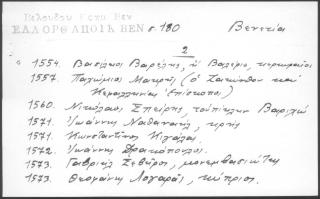 Βελούδου
ΕΛΛ ΟΡΘ ΑΠΟΙΚ ΒΕΝ σ. 180 Βενετία
2
1554. Βασίλειος Βαρέλης, ἢ Βαλέριο, κερκυραῖος
1557. Παχώμιος Μακρῆς (ὁ Ζακύνθου καὶ
Κεφαλληνίας Ἐπίσκοπος)
1560. Νικόλαος Σπείρης, τοὐπίκλην
1571. Ἰωάννης Ναθαναήλ, κρής
1571. Κωνσταντῖνος
1572. Ἰωάννης Δρακόπουλος.
1573. Γαβριὴλ Σεβῆρος, μονεμβασιώτης
1573. Θεοφάνης Λογαρᾶς, κύπριος.